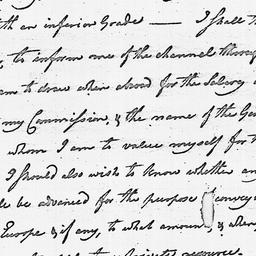 with an inferior Grade — I shall
to inform one of the channel throug
am to draw when abroad for the Salary
my Commission, & the name of the
whom I am to value myself for
I should also wish to know whether
be advanced for the purpose convey
Europe & if any, to what amount, &